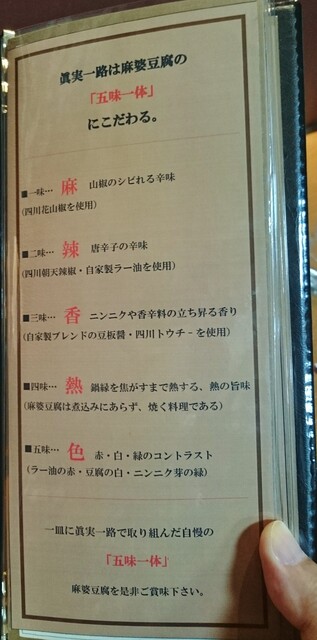 眞実一路は麻婆豆腐の
「五味一体」
にこだわる。
■一味… 麻 山椒のシビれる辛味
(四川花山椒を使用)
■二味… 辣 唐辛子の辛味
(四川朝天辣椒・自家製ラー油を使用)
■三味… 香 ニンニクや香辛料の立ち昇る香り
(自家製ブレンドの豆板醤・四川トウチ-を使用)
■四味… 熱 鍋縁を焦がすまで熱する、熱の旨味
(麻婆豆腐は煮込みにあらず、焼く料理である)
■五味… 色 赤・白・緑のコントラスト
(ラー油の赤・豆腐の白・ニンニク芽の緑)
一皿に眞実一路で取り組んだ自慢の
「五味一体」
麻婆豆腐を是非ご賞味下さい。